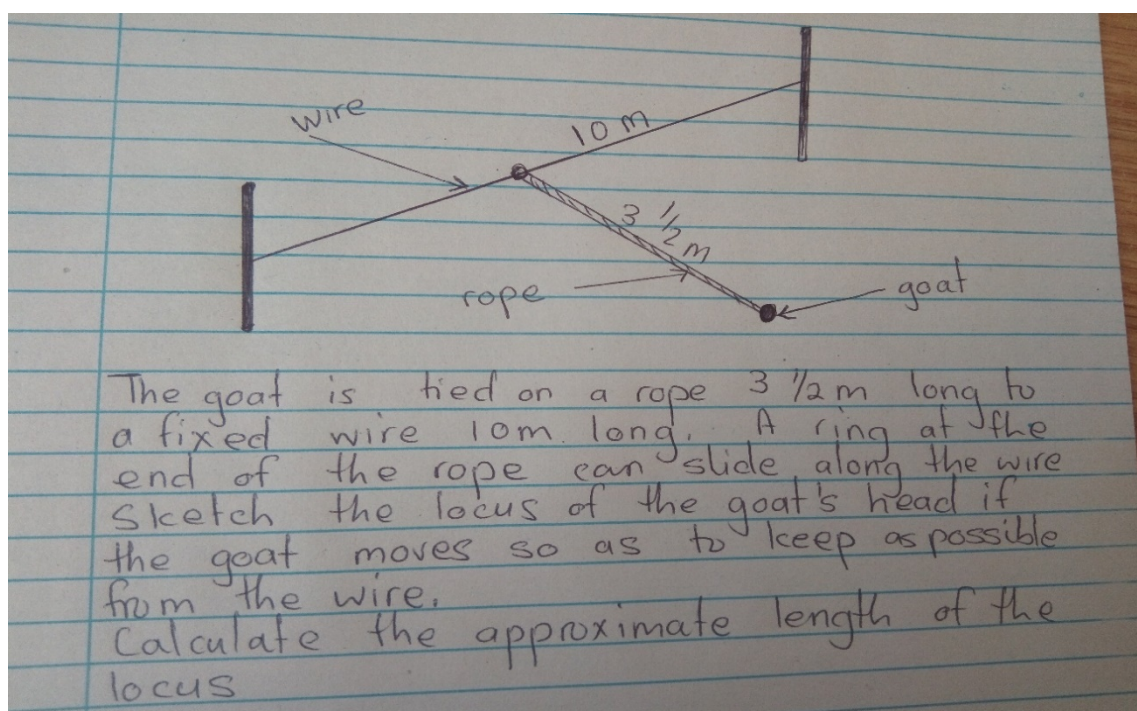 wire
10 m
3 1/2 m
rope
goat
The goat is tied on a rope 3 1/2 m long to
a fixed wire 10m. long. A ring at the
end of the rope can slide along the wire
Sketch the locus of the goat's head if
the goat moves so as to keep as possible
from the wire.
Calculate the approximate length of the
locus